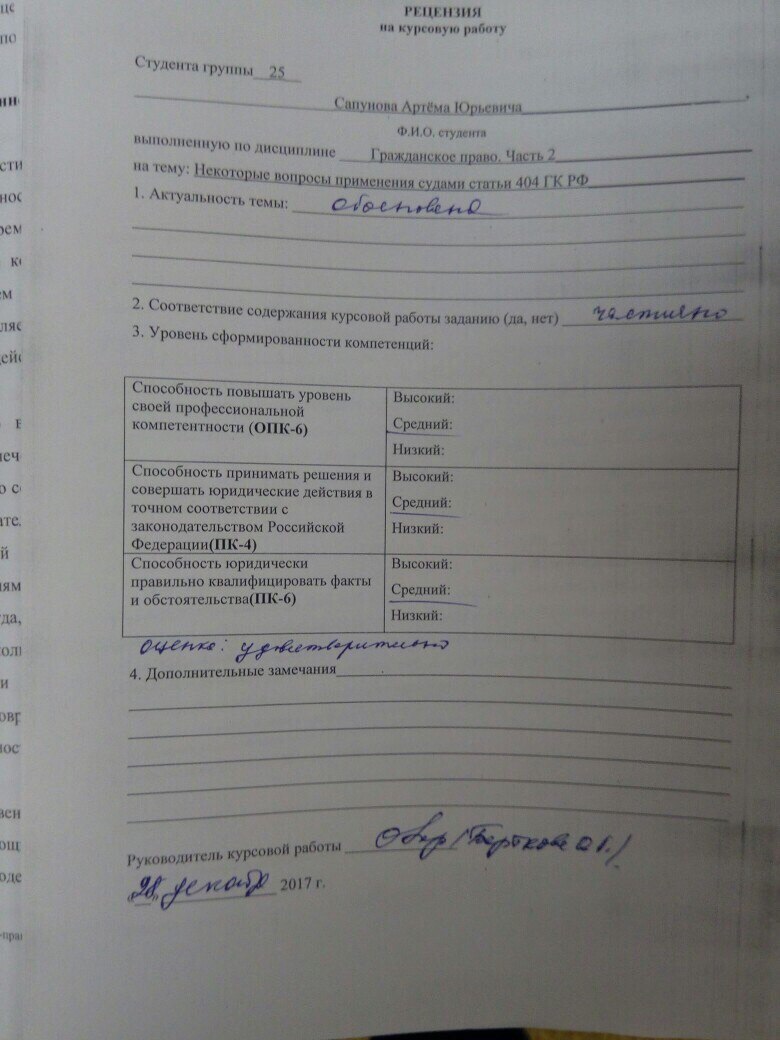 РЕЦЕНЗИЯ
на курсовую работу
Студента группы 25
Сапунова Артёма Юрьевича
Ф.И.О. студента
выполненную по дисциплине Гражданское право. Часть 2
на тему: Некоторые вопросы применения судами статьи 404 ГК РФ
1. Актуальность темы: обоснована
2. Соответствие содержания курсовой работы заданию (да, нет) частично
3. Уровень сформированности компетенций:
Способность повышать уровень
своей профессиональной
компетентности (ОПК-6)
Высокий:
Средний:
Низкий:
Способность принимать решения и
совершать юридические действия в
точном соответствии с
законодательством Российской
Федерации(ПК-4)
Высокий:
Средний:
Низкий:
Способность юридически
правильно квалифицировать факты
и обстоятельства(ПК-6)
Высокий:
Средний:
Низкий:
оценка: удовлетворительно
4. Дополнительные замечания
Руководитель курсовой работы
28 декабр 2017 г.